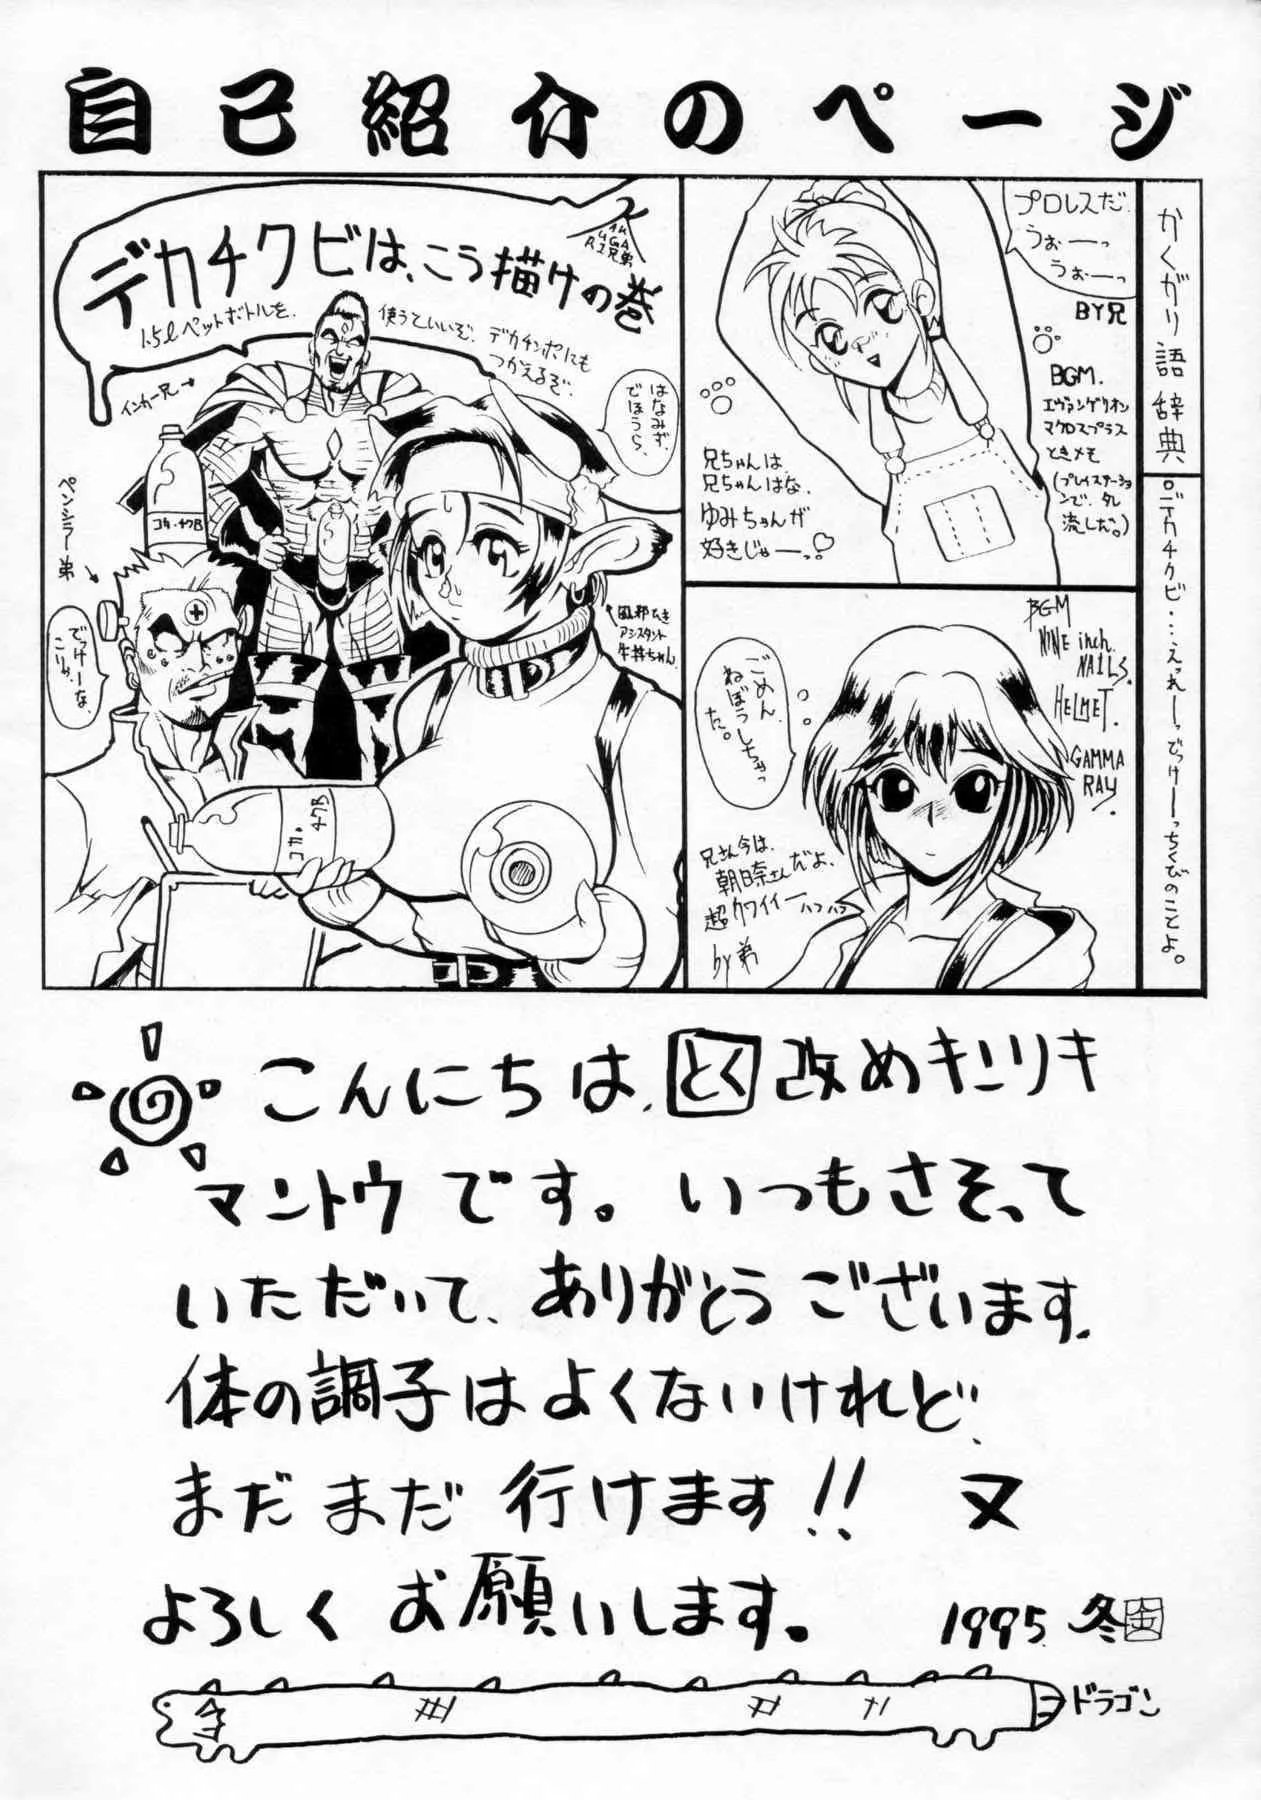 自己紹介のページ
かくがり語辞典
・デカチクビ・・・えっれーっでっけーっちくびのことよ。
プロレスだ。
うぉーっ
うぉーっ
BY兄
BGM.
エヴァンゲリオン
マクロスプラス
ときメモ
(プレイステーションで、タレ
流しだ。)
兄ちゃんは
兄ちゃんはな、
ゆみちゃんが
好きじゃーっ♡
BGM
NINE inch.
NAILS.
HELMET.
GAMMA
RAY.
ごめん、
ねぼうしちゃっ
た。
兄さん今は、
朝日奈さんだよ、
超クワイイーハフハフ
by弟
デカチクビは、こう描けの巻
兄弟
1.5ℓペットボトルを、
使うといいぞ。
デカチンポにも
つかえるぞ。
インカー兄→
はなみず、
でほうら、
ペンシラー弟
でっけーな
こりゃ。
コカ・チクB
コカ・
チクB
アシスタント
牛丼ちゃん
こんにちは、とく改めキンリキ
マントウです。いつもさそって
いただいて、ありがとうございます。
体の調子はよくないけれど、
まだまだ行けます!!又
よろしくお願いします。
1995.冬
ドラゴン